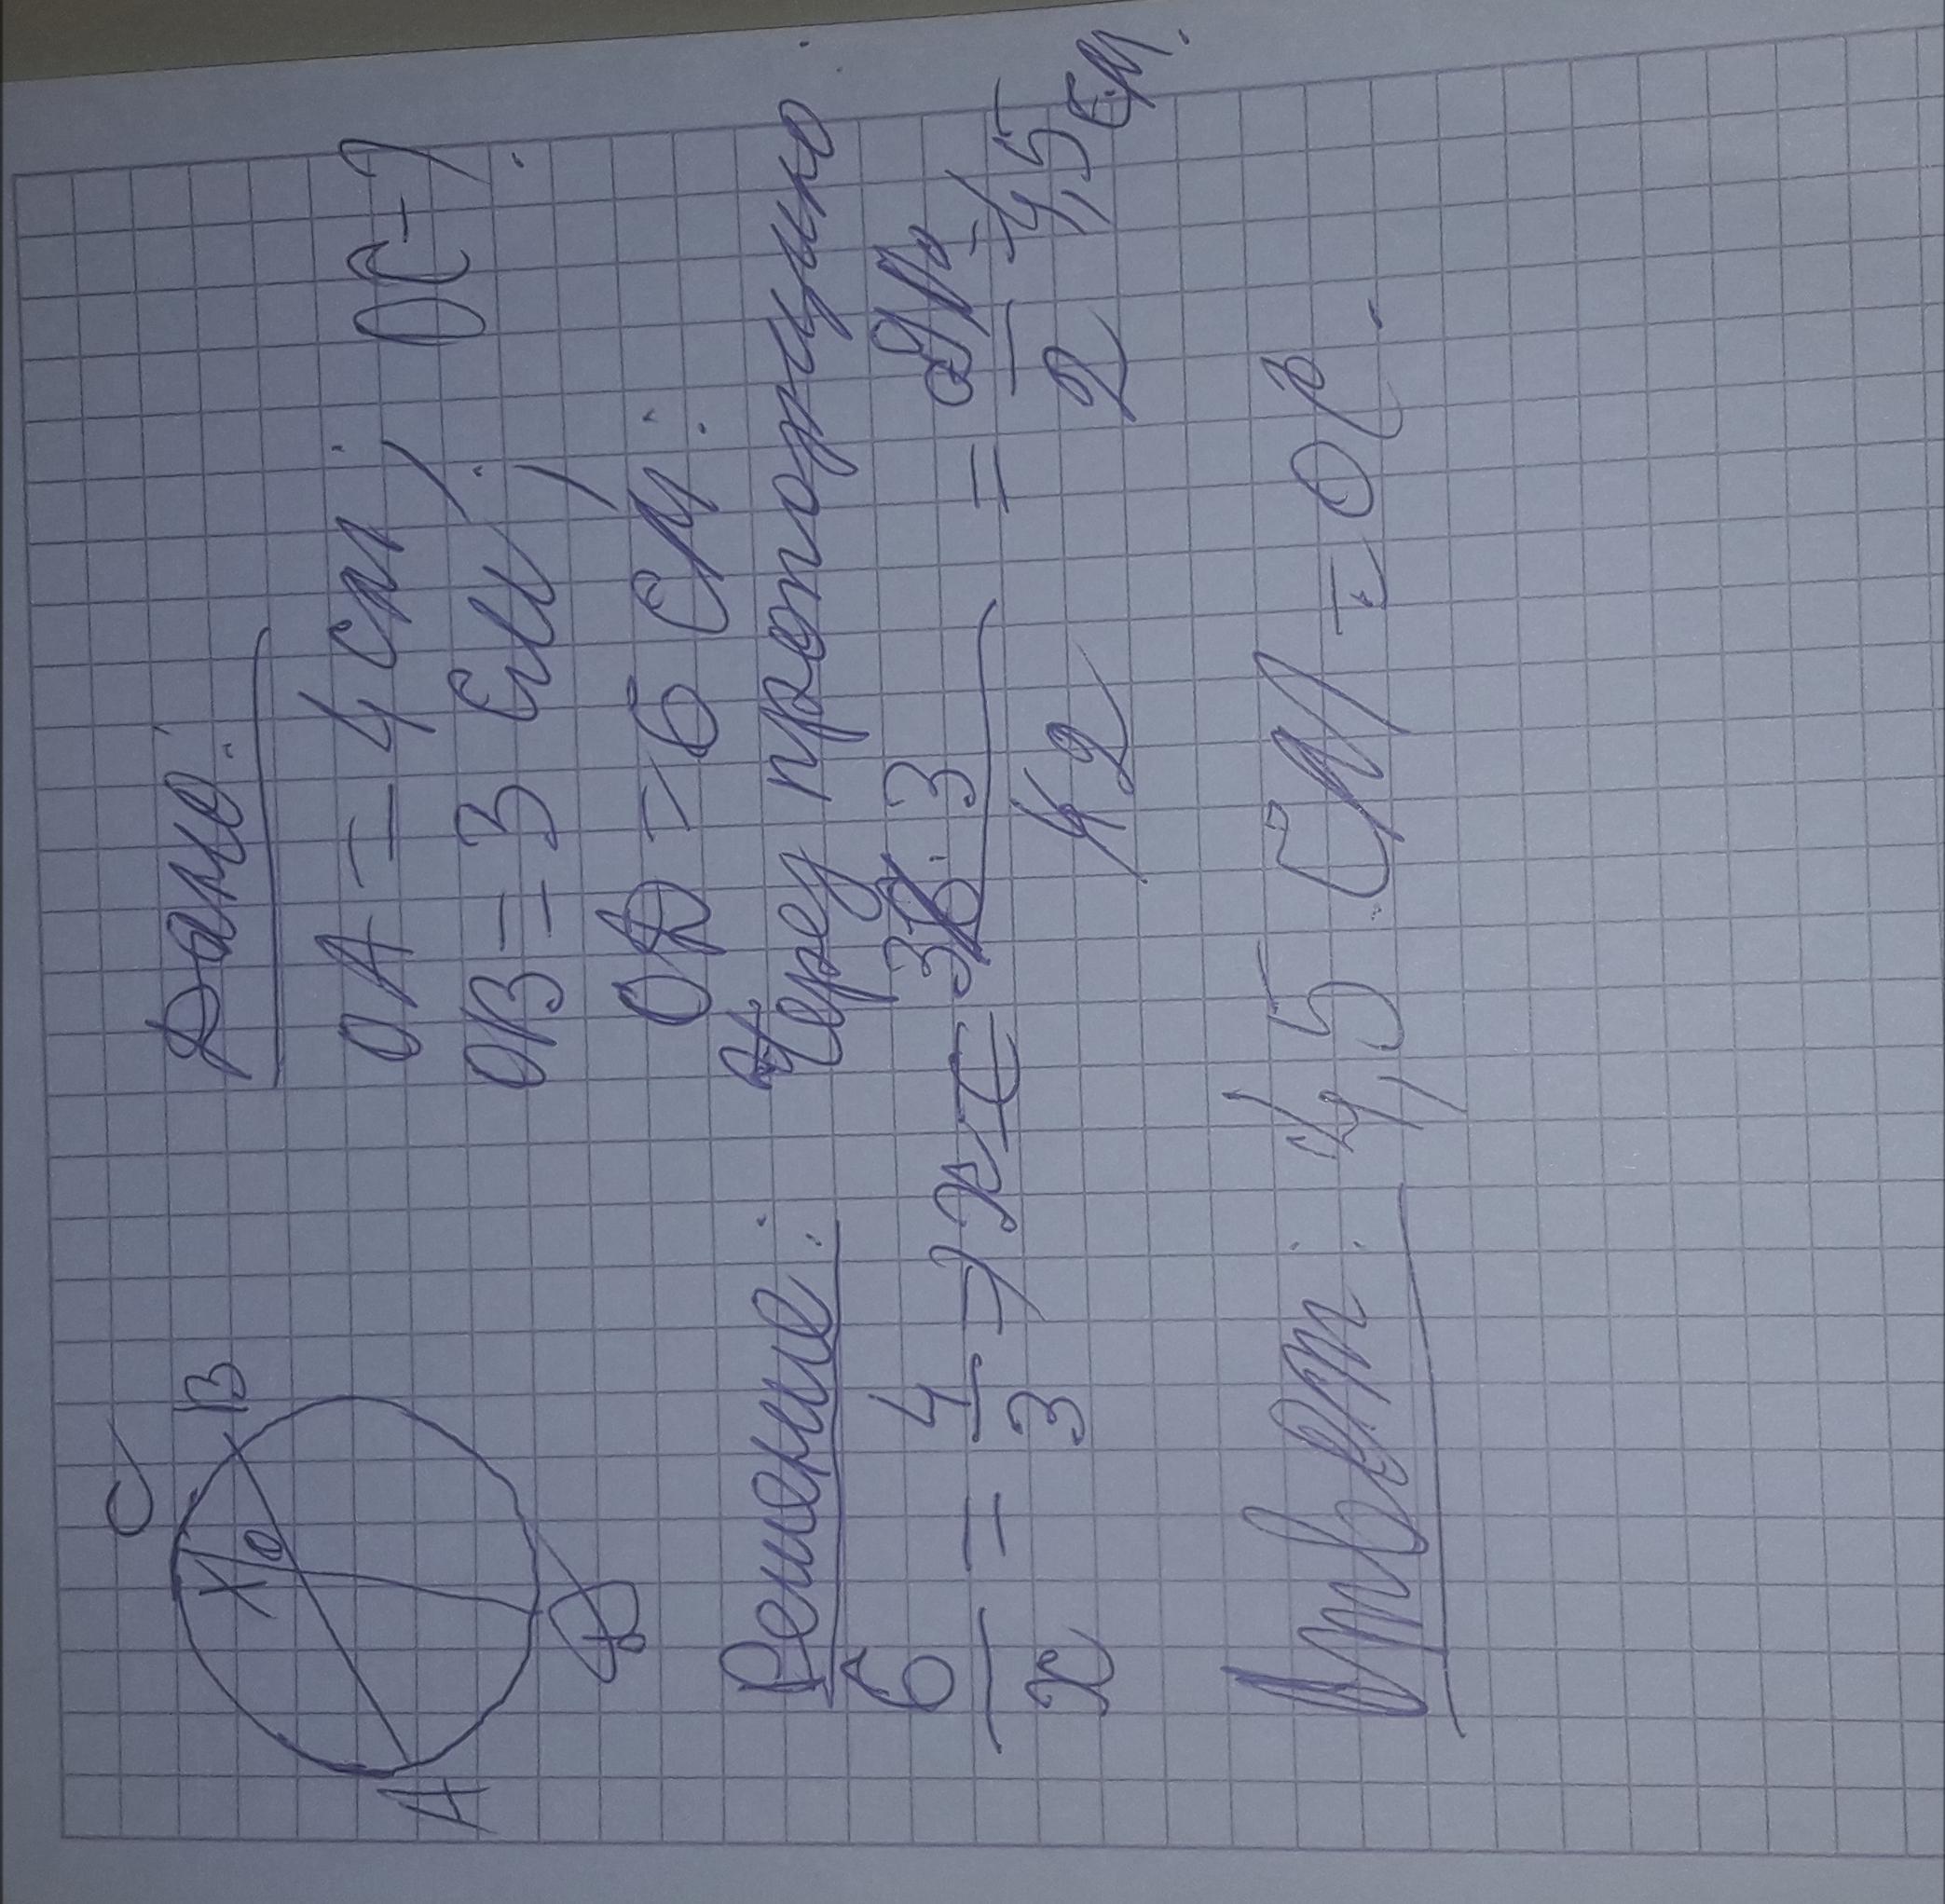 Дано:
C
B
X
O
A
D
OA = 4 см;
OB = 3 см;
OD = 6 см.
OC - ?
Решение:
Через пропорцию
6/x = 4/3 => x = 3 · 3 / 2 = 9/2 = 4,5 см.
Ответ: 4,5 см = OC.